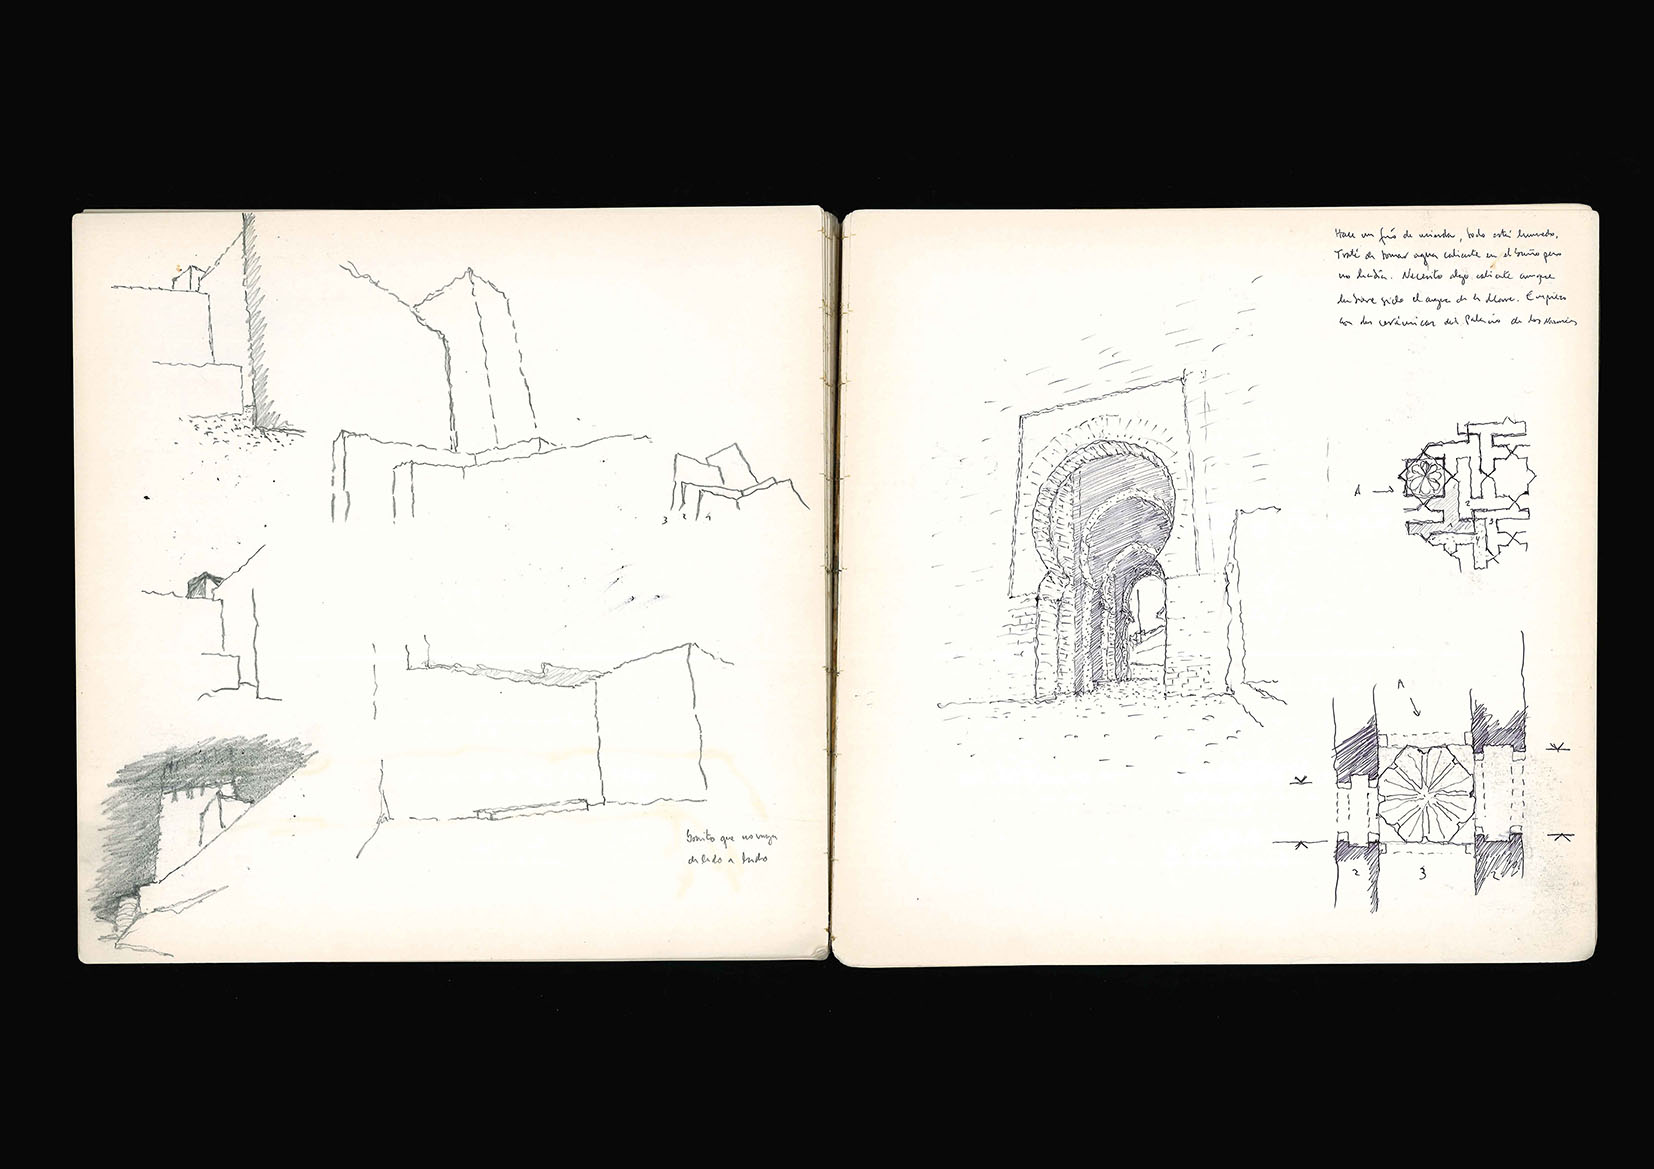 3 2 4
Bonito que no vaya
de lado a lado
Hace un frío de mierda, todo está húmedo.
Traté de tomar agua caliente en el baño pero
no había. Necesito algo caliente aunque
hubiera sido el agua de la llave. Empiezo
con las cerámicas del Palacio de los
A
2
1 3
A
2 3 2